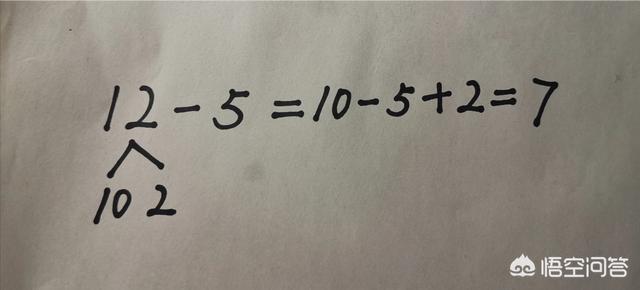 12-5=10-5+2=7
10 2
悟空问答